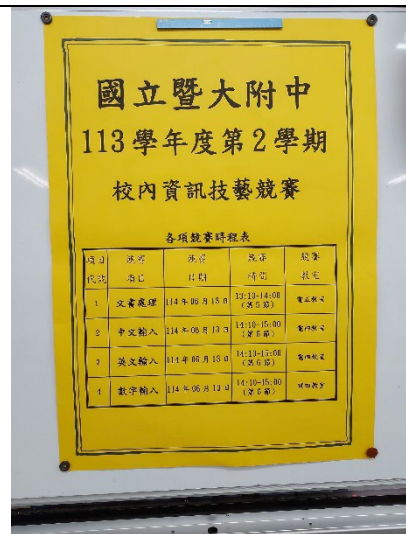 國立暨大附中
113學年度第2學期
校內資訊技藝競賽
各項競賽時程表
項目代號 競賽項目 競賽日期 競賽時間 競賽教室
1 文書處理 114年06月13日 13:10-14:00 (第5節)
2 中文輸入 114年06月13日 14:10-15:00 (第6節)
3 英文輸入 114年06月13日 14:10-15:00 (第6節)
4 數字輸入 114年06月13日 14:10-15:00 (第6節)